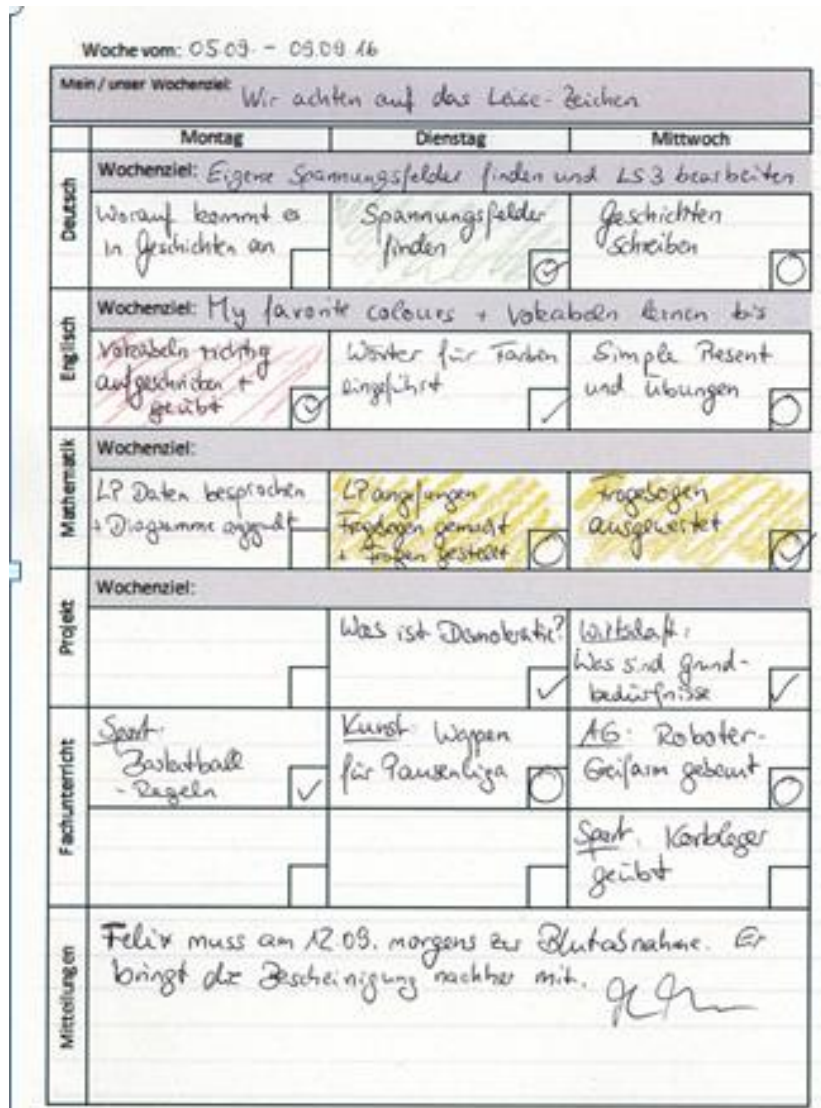 Woche vom: 05.09. - 09.09.16
Mein / unser Wochenziel: Wir achten auf das Leise-Zeichen
Montag Dienstag Mittwoch
Deutsch
Wochenziel: Eigene Spannungsfelder finden und LS3 bearbeiten
Worauf kommt es
in Geschichten an
Spannungsfelder
finden
Geschichten
schreiben
Englisch
Wochenziel: My favorite colours + Vokabeln lernen bis
Vokabeln richtig
aufgeschrieben +
geübt
Wörter für Farben
eingeführt
Simple Present
und Übungen
Mathematik
Wochenziel:
LP Daten besprochen
+ Diagramme
LP angefangen
Fragebogen gemacht
+ Fragen gestellt
Fragebogen
ausgewertet
Projekt
Wochenziel:
Was ist Demokratie?
Wirtschaft:
Was sind Grund-
bedürfnisse
Fachunterricht
Sport:
Basketball
- Regeln
Kunst: Wappen
für Pausenliga
AG: Roboter-
Greifarm gebaut
Sport: Korbleger
geübt
Mitteilungen
Felix muss am 12.09. morgens zur Blutabnahme. Er
bringt die Bescheinigung nachher mit.